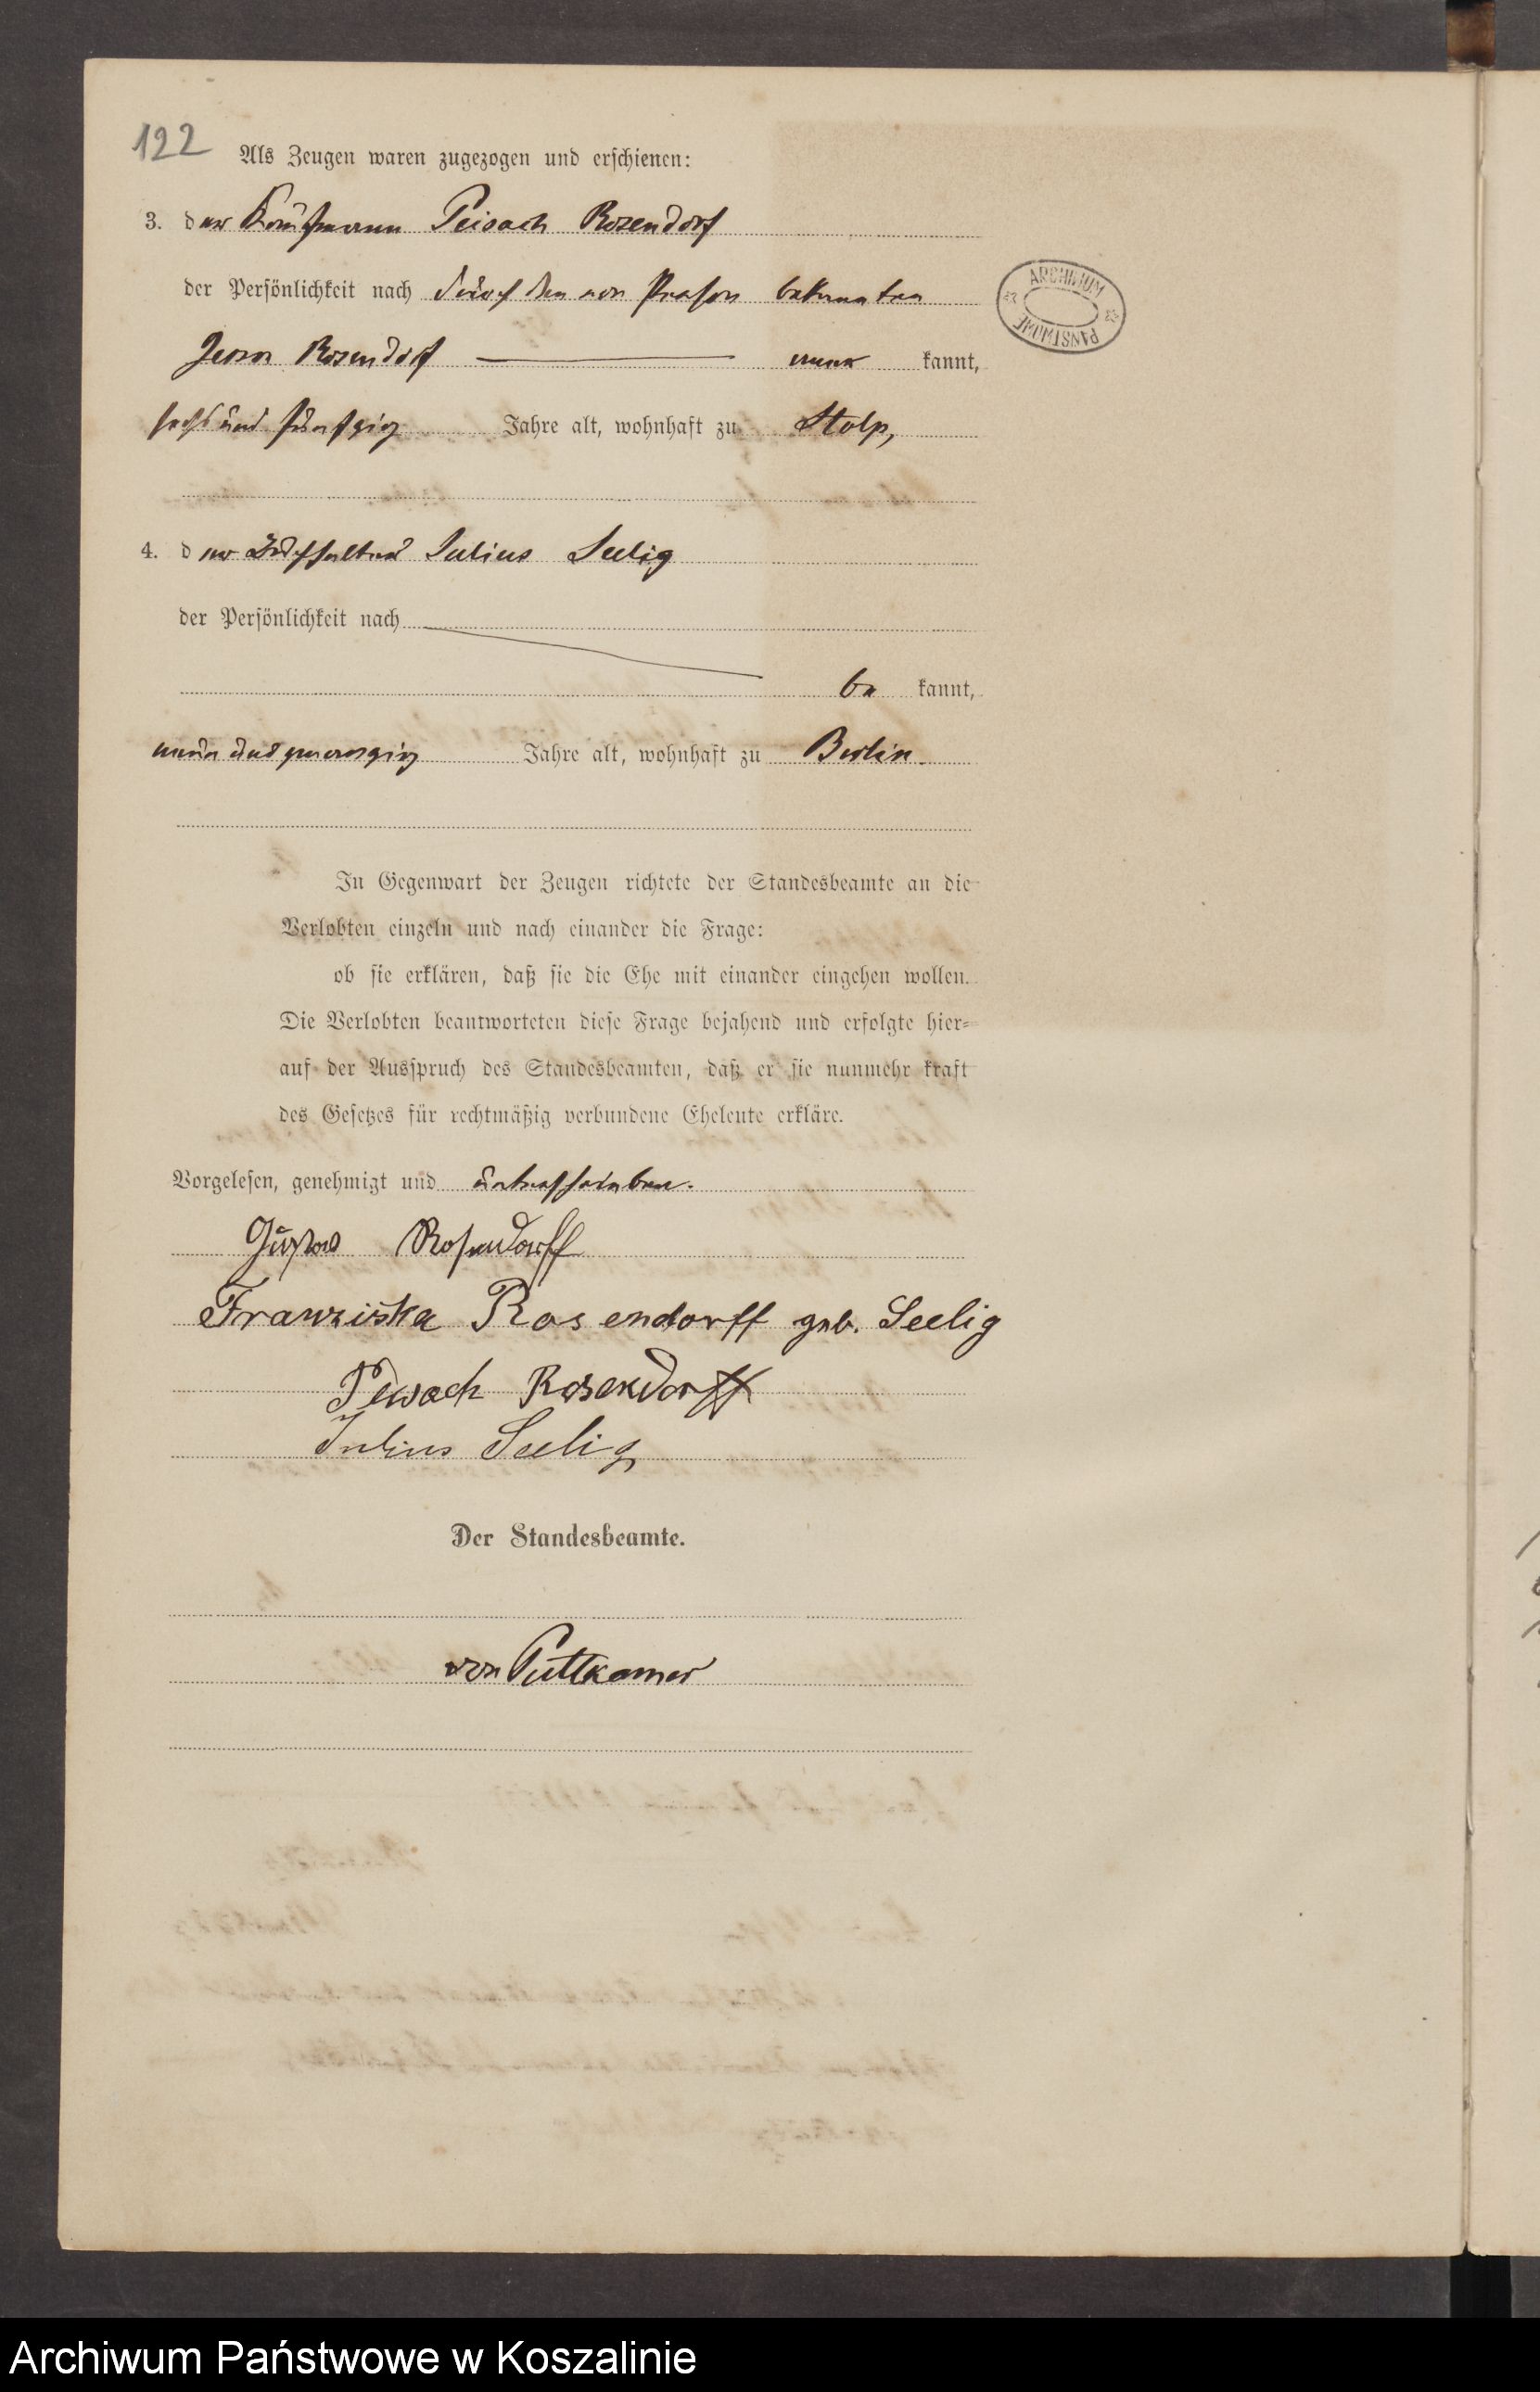 122
Als Zeugen waren zugezogen und erschienen:
3. der Kaufmann Peisach Rosendorf
der Persönlichkeit nach durch den von Person bekannten
Rosendorf aner kannt,
sechs und fünfzig Jahre alt, wohnhaft zu Stolp,
4. der Buchhalter Julius Seelig
der Persönlichkeit nach
be kannt,
neun und zwanzig Jahre alt, wohnhaft zu Berlin.
In Gegenwart der Zeugen richtete der Standesbeamte an die
Verlobten einzeln und nach einander die Frage:
ob sie erklären, daß sie die Ehe mit einander eingehen wollen.
Die Verlobten beantworteten diese Frage bejahend und erfolgte hier-
auf der Ausspruch des Standesbeamten, daß er sie nunmehr kraft
des Gesetzes für rechtmäßig verbundene Eheleute erkläre.
Vorgelesen, genehmigt und unterschrieben.
Gustav Rosendorff
Franziska Rosendorff geb. Seelig
Rosendorff
Julius Seelig
Der Standesbeamte.
von Puttkamer
ARCHIWUM
PAŃSTWOWE
Archiwum Państwowe w Koszalinie